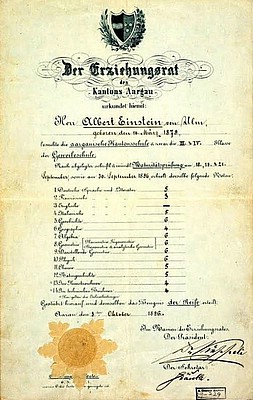 Der Erziehungsrat
des
Kantons Aargau
urkundet hiemit:
Herr Albert Einstein von Ulm,
geboren den 14. März 1879,
besuchte die aargauische Kantonsschule & zwar die III. & IV. Klasse
der Gewerbeschule.
Nach abgelegter schriftl. & mündl. Maturitätsprüfung am 18., 19. & 21.
September, sowie am 30. September 1896, erhielt derselbe folgende Noten:
1. Deutsche Sprache und Litteratur 5
2. Französische 3
3. Englische —
4. Italienische 5
5. Geschichte 6
6. Geographie 4
7. Algebra 6
8. Geometrie 6
9. Darstellende Geometrie 6
10. Physik 6
11. Chemie 5
12. Naturgeschichte 5
13. Im Kunstzeichnen 4
14. Im technischen Zeichnen 4
Gestützt hierauf wird demselben das Zeugnis der Reife erteilt.
Aarau den 3ten Oktober 1896.
Im Namen des Erziehungsrates,
Der Präsident:
Der Sekretär: